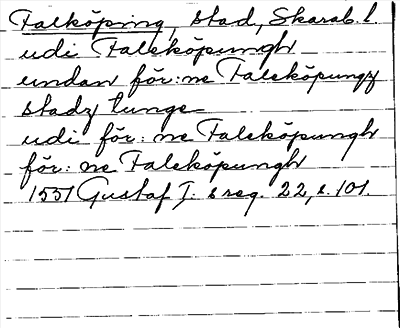 Falköping, stad, Skarab. l.
udi Faleköpungh
undan för:ne Faleköpungz
stadz tunge
udi för:ne Faleköpungh
för:ne Faleköpungh
1551 Gustaf I:s reg. 22, s. 101.